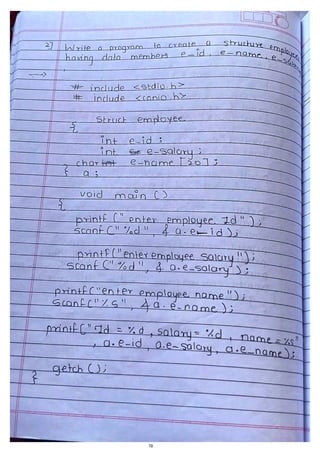 2] Write a program to create a structure employee
having data members e-id, e-name, e-salary
→
# include <stdio.h>
# include <conio.h>
struct employee
{
int e-id ;
int e-salary ;
char e-name [20] ;
} a ;
void main ()
{
printf (" enter employee Id") ;
scanf (" %d ", & a.e-id );
printf ("enter employee salary ");
scanf (" %d ", & a.e-salary );
printf ("enter employee name");
scanf ("%s", & a.e-name );
printf (" Id = %d , salary = %d , name = %s"
, a.e-id , a.e-salary, a.e_name);
getch ();
}
19